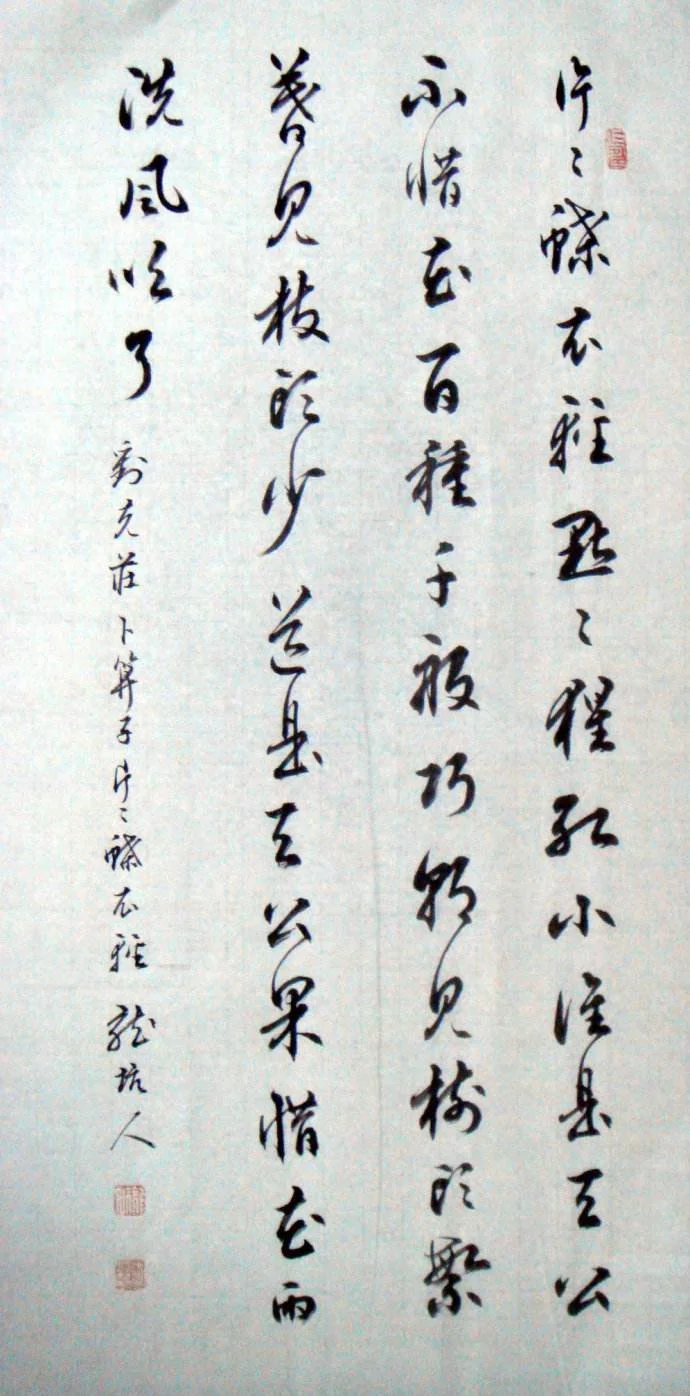 片々蝶衣輕點々猩紅小誰是天公
不惜花百種千般巧朝見樹頭繁
暮見枝頭少道是天公果惜花雨
洗風吹了 劉克莊卜算子片々蝶衣輕 龍坑人